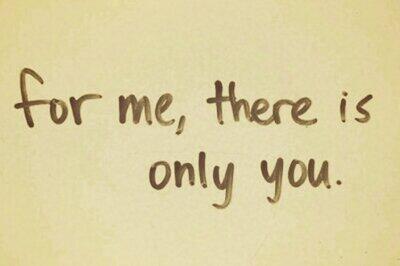 for me, there is
only you.